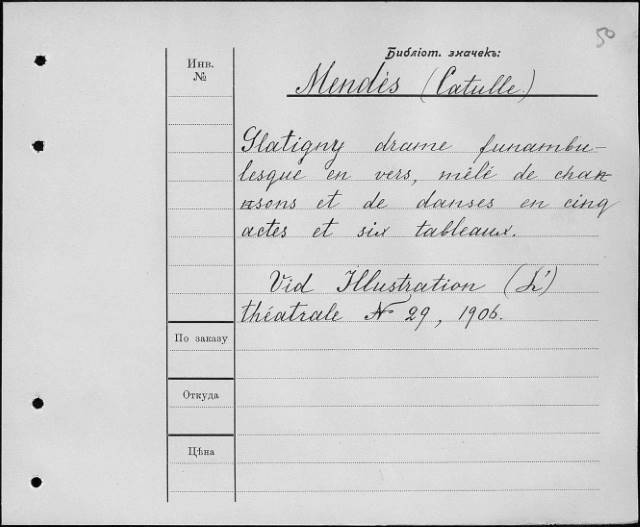 50
Библіот. значекъ:
Инв.
№
Mendès (Catulle)
Glatigny drame funambu-
lesque en vers, mêlé de chan-
nsons et de danses en cinq
actes et six tableaux.
Vid Illustration (L')
théâtrale № 29, 1906.
По заказу
Откуда
Цѣна